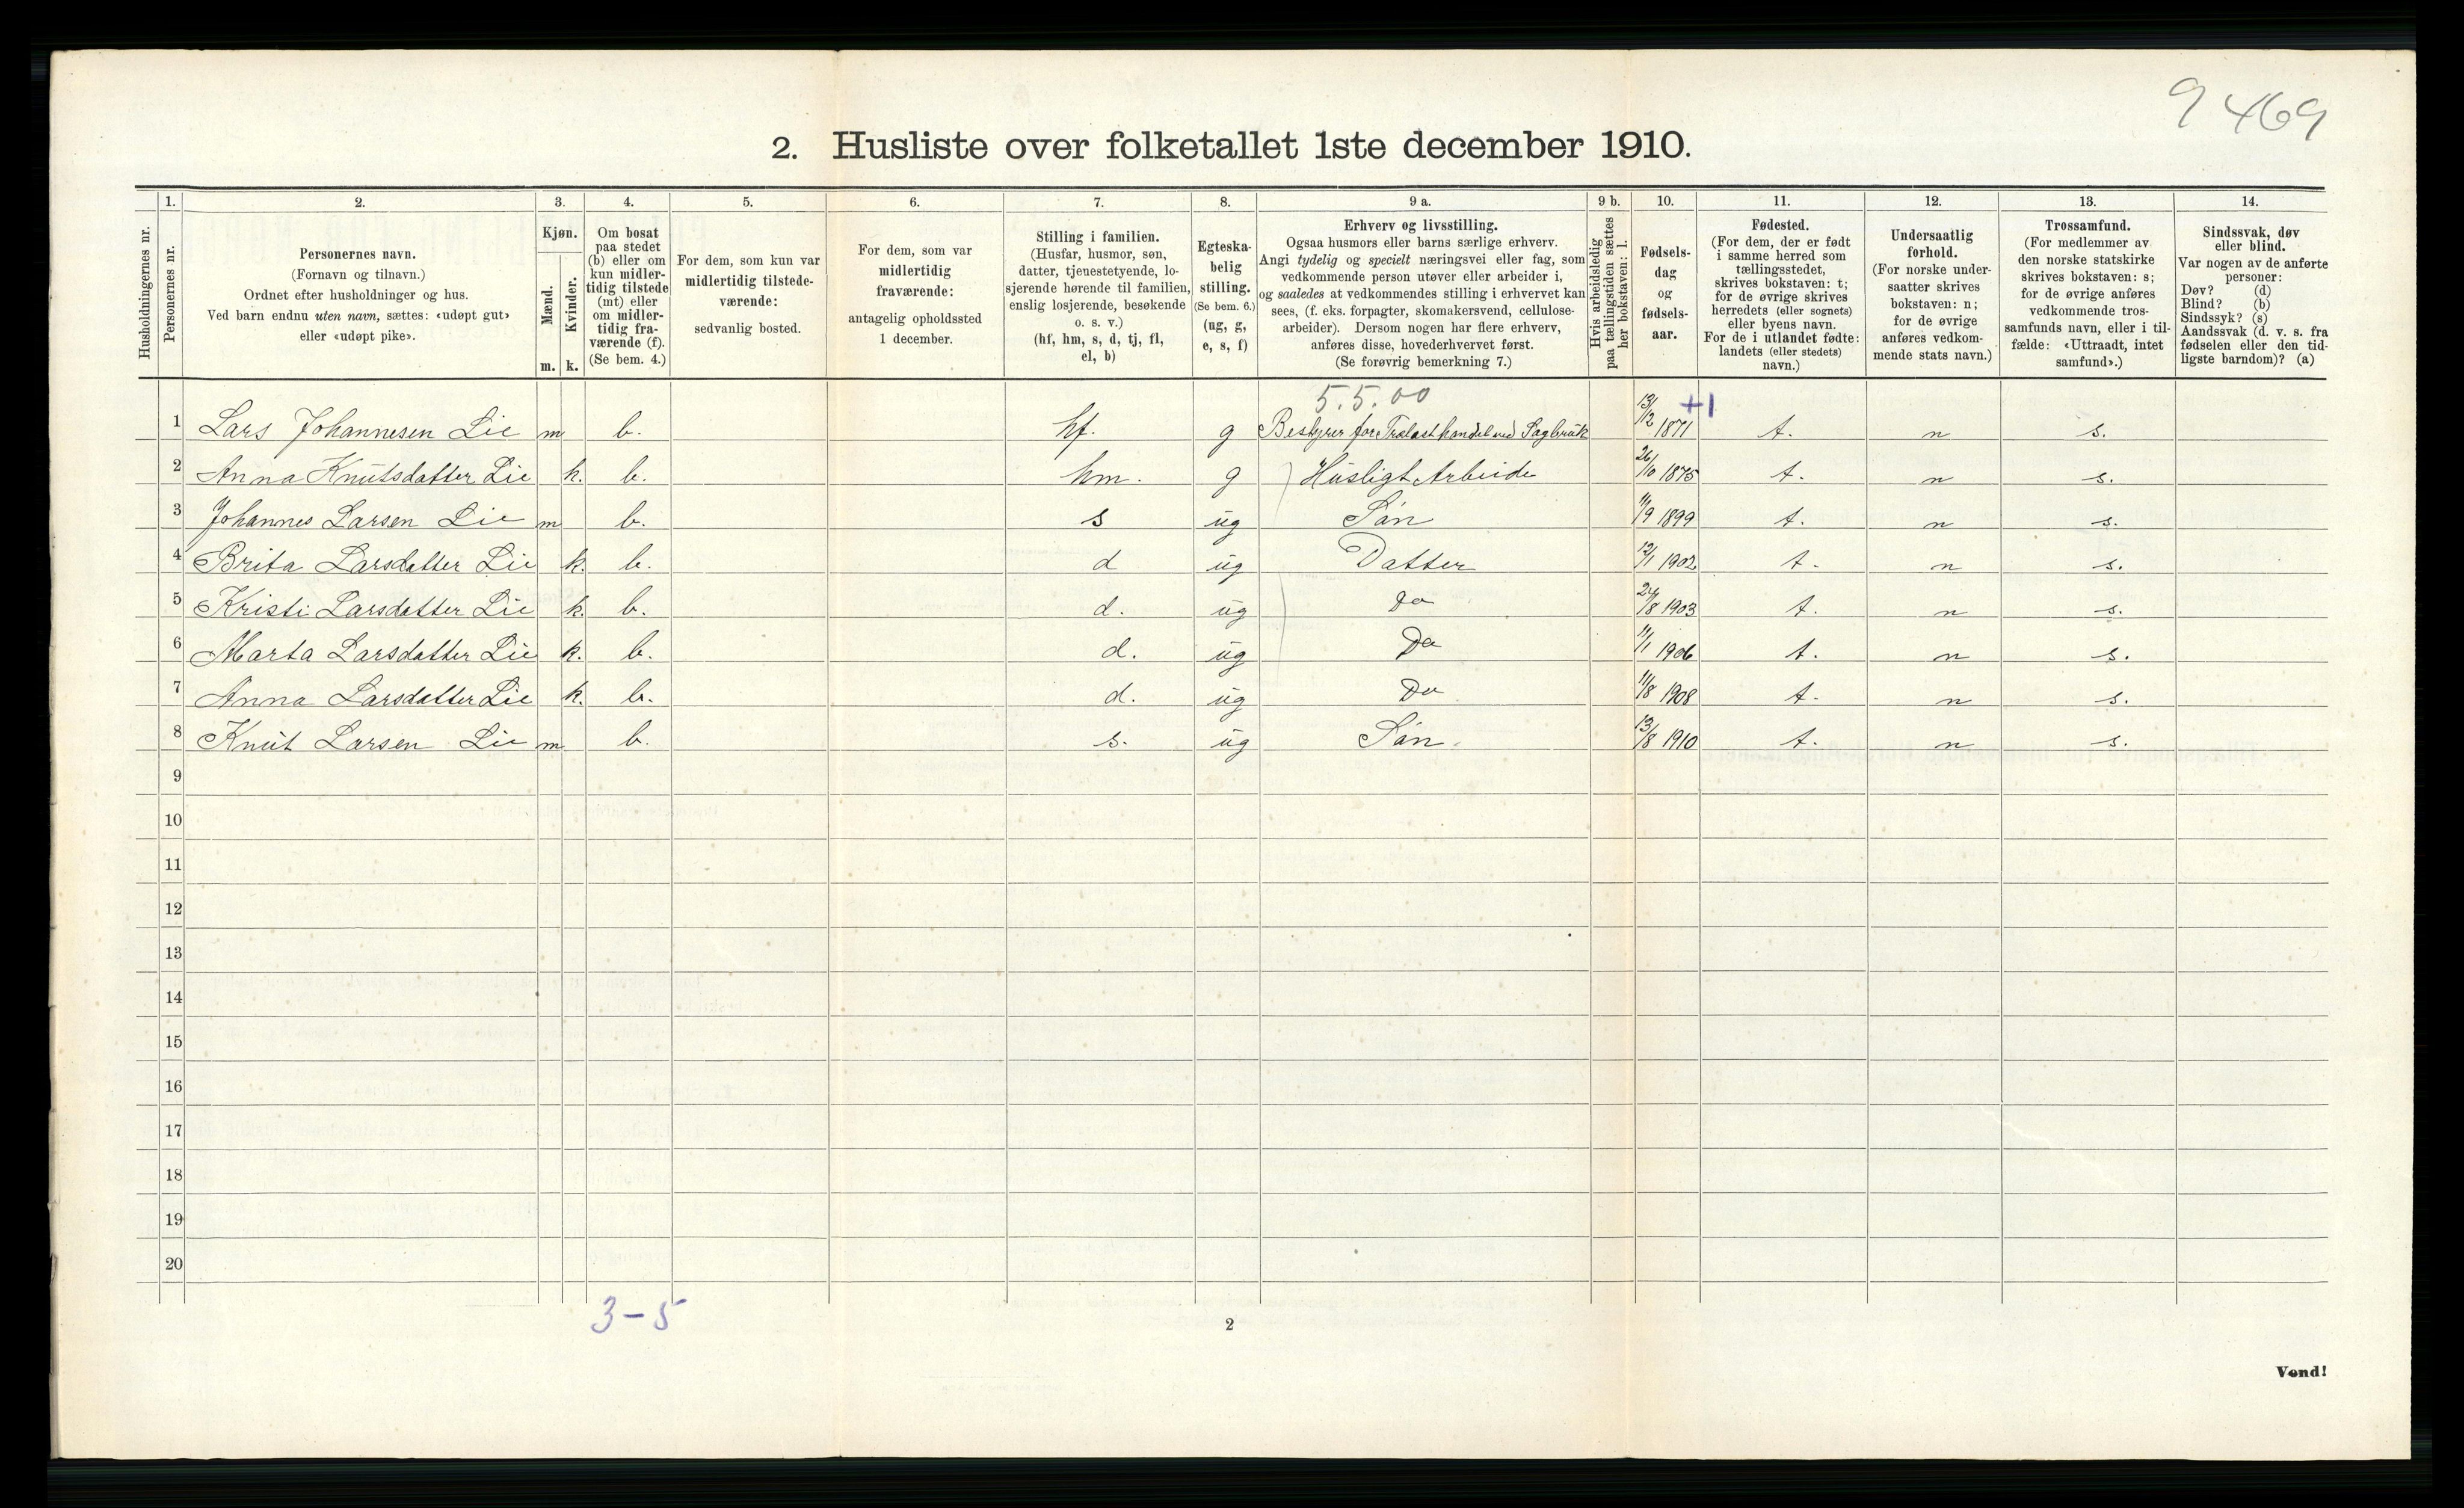 9 469
2. Husliste over folketallet 1ste december 1910.
Husholdningernes nr.
1.
Personernes nr.
2.
Personernes navn.
(Fornavn og tilnavn.)
Ordnet efter husholdninger og hus.
Ved barn endnu uten navn, sættes: «udøpt gut»
eller «udøpt pike».
3.
Kjøn.
Mænd.
Kvinder.
m. k.
4.
Om bosat
paa stedet
(b) eller om
kun midler-
tidig tilstede
(mt) eller
om midler-
tidig fra-
værende (f).
(Se bem. 4.)
5.
For dem, som kun var
midlertidig tilstede-
værende:
sedvanlig bosted.
6.
For dem, som var
midlertidig
fraværende:
antagelig opholdssted
1 december.
7.
Stilling i familien.
(Husfar, husmor, søn,
datter, tjenestetyende, lo-
sjerende hørende til familien,
enslig losjerende, besøkende
o. s. v.)
(hf, hm, s, d, tj, fl,
el, b)
8.
Egteska-
belig
stilling.
(Se bem. 6.)
(ug, g,
e, s, f)
9 a.
Erhverv og livsstilling.
Ogsaa husmors eller barns særlige erhverv.
Angi tydelig og specielt næringsvei eller fag, som
vedkommende person utøver eller arbeider i,
og saaledes at vedkommendes stilling i erhvervet kan
sees, (f. eks. forpagter, skomakersvend, cellulose-
arbeider). Dersom nogen har flere erhverv,
anføres disse, hovederhvervet først.
(Se forøvrig bemerkning 7.)
9 b.
Hvis arbeidsledig
paa tællingstiden sættes
her bokstaven: l.
10.
Fødsels-
dag
og
fødsels-
aar.
11.
Fødested.
(For dem, der er født
i samme herred som
tællingsstedet,
skrives bokstaven: t;
for de øvrige skrives
herredets (eller sognets)
eller byens navn.
For de i utlandet fødte:
landets (eller stedets)
navn.)
12.
Undersaatlig
forhold.
(For norske under-
saatter skrives
bokstaven: n;
for de øvrige
anføres vedkom-
mende stats navn.)
13.
Trossamfund.
(For medlemmer av
den norske statskirke
skrives bokstaven: s;
for de øvrige anføres
vedkommende tros-
samfunds navn, eller i til-
fælde: «Uttraadt, intet
samfund».)
14.
Sindssvak, døv
eller blind.
Var nogen av de anførte
personer:
Døv? (d)
Blind? (b)
Sindssyk? (s)
Aandssvak (d. v. s. fra
fødselen eller den tid-
ligste barndom)? (a)
5.5.00 +1
1 Lars Johannesen Lie m b. hf. g Bestyrer for Trælasthandel med Sagbruk 13/12 1871 t. n s.
2 Anna Knutsdatter Lie k. b. hm. g Husligt Arbeide 26/10 1875 t. n s.
3 Johannes Larsen Lie m b. s ug Søn 11/9 1899 t. n s.
4 Brita Larsdatter Lie k. b. d ug Datter 12/1 1902 t. n s.
5 Kristi Larsdatter Lie k. b. d. ug Do 24/8 1903 t. n s.
6 Marta Larsdatter Lie k. b. d. ug Do 11/1 1906 t. n s.
7 Anna Larsdatter Lie k. b. d. ug Do 11/8 1908 t. n s.
8 Knut Larsen Lie m b. s. ug Søn 13/8 1910 t. n s.
9
10
11
12
13
14
15
16
17
18
19
20
3-5
2
Vend!